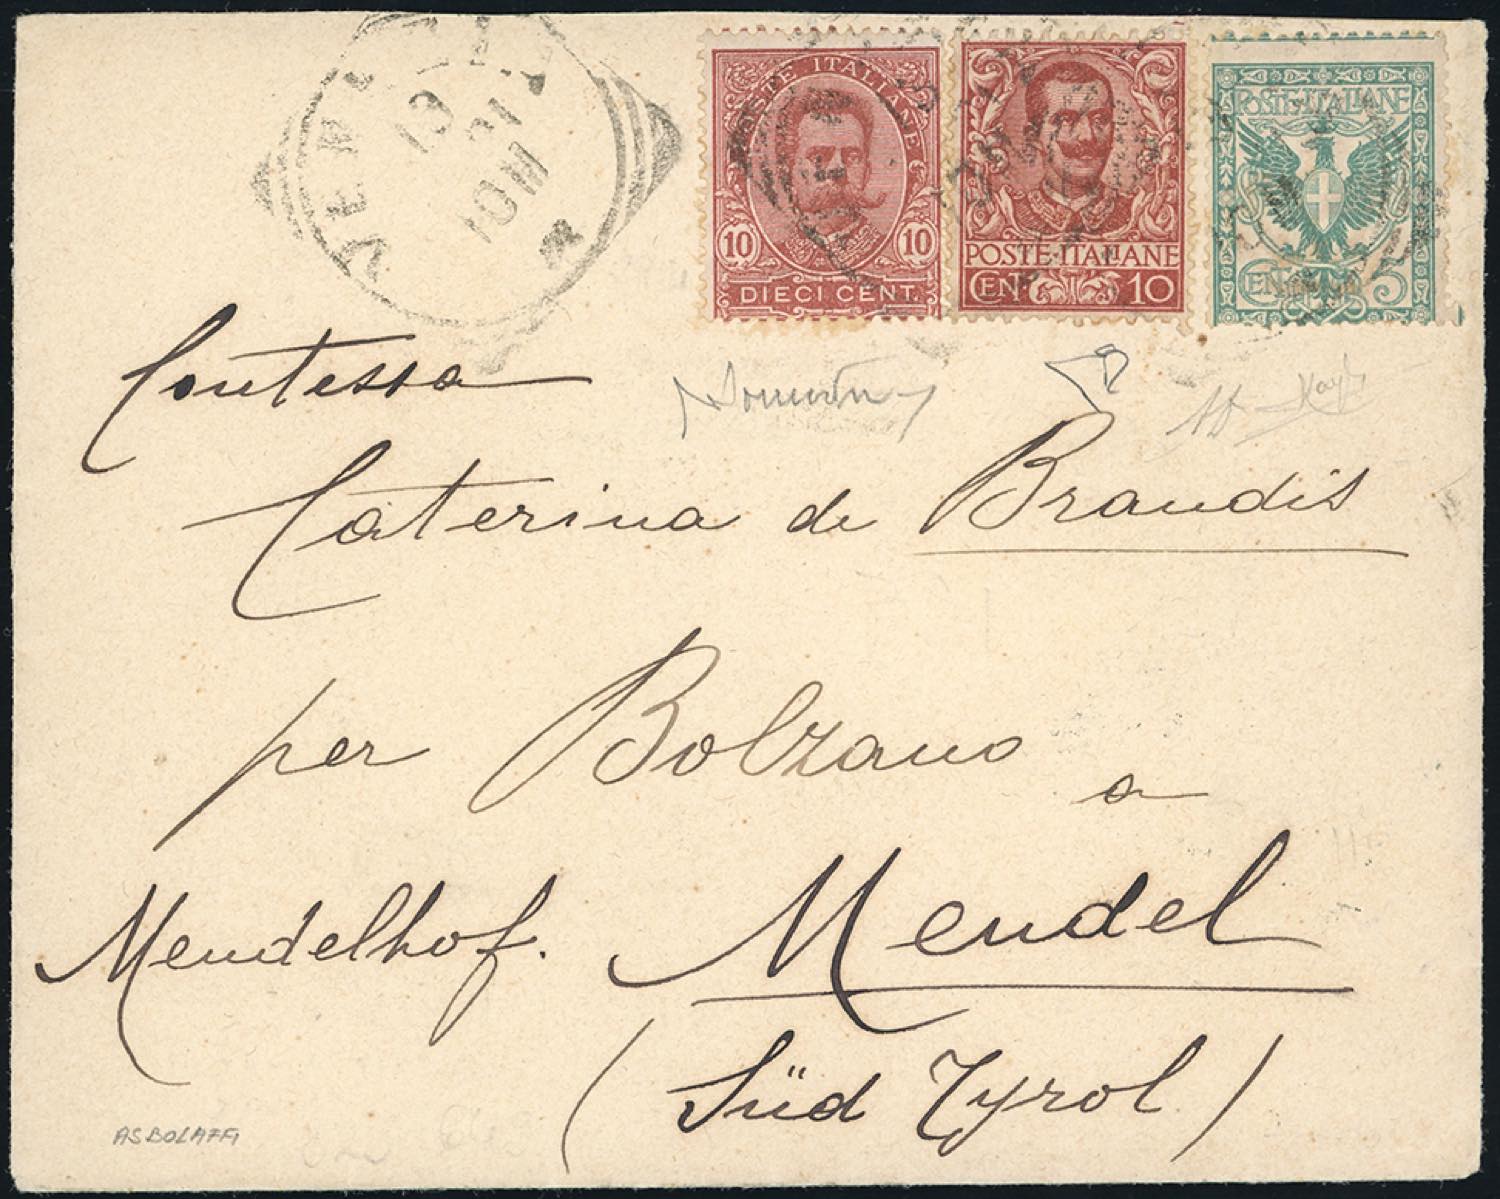 POSTE ITALIANE
10 10
DIECI CENT.
POSTE·ITALIANE
CENT. 10
POSTE·ITALIANE
CENT. 5
Contessa
Caterina de Brandis
per Bolzano
a
Mendelhof. Mendel
(Süd Tyrol)
ASBOLAFFI